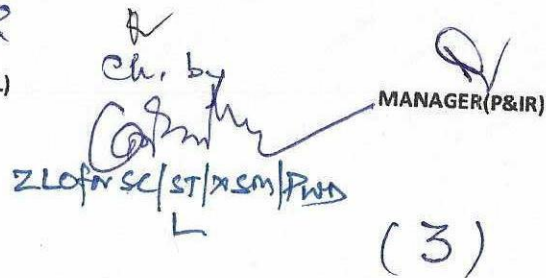 Ch. by
MANAGER(P&IR)
ZLO for SC/ST/XSM/PWD
L
(3)